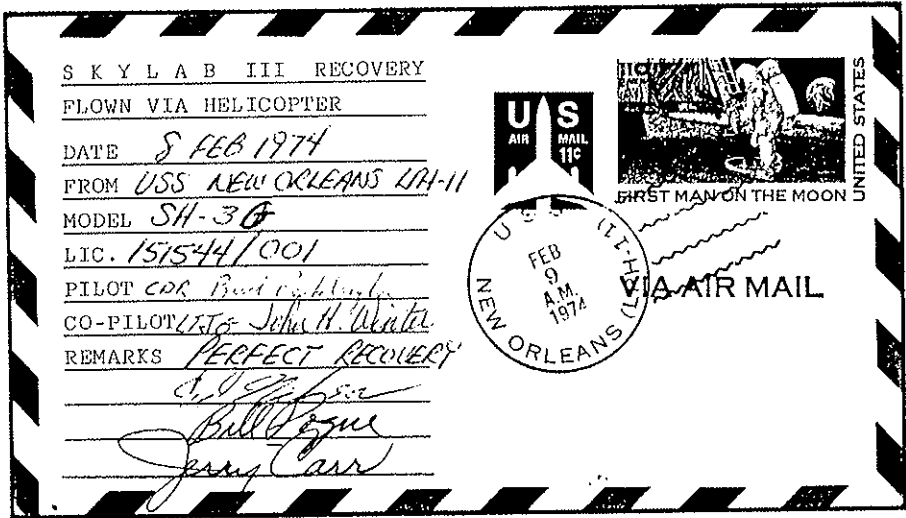 S K Y L A B III RECOVERY
FLOWN VIA HELICOPTER
DATE 8 FEB 1974
FROM USS NEW ORLEANS LPH-11
MODEL SH-3G
LIC. 151544/001
PILOT CDR
CO-PILOT LTJG John H. Winter
REMARKS PERFECT RECOVERY
Bill Pogue
Jerry Carr
US
AIR MAIL
11¢
FIRST MAN ON THE MOON
UNITED STATES
USS NEW ORLEANS (LPH-11)
FEB
9
A.M.
1974
VIA AIR MAIL